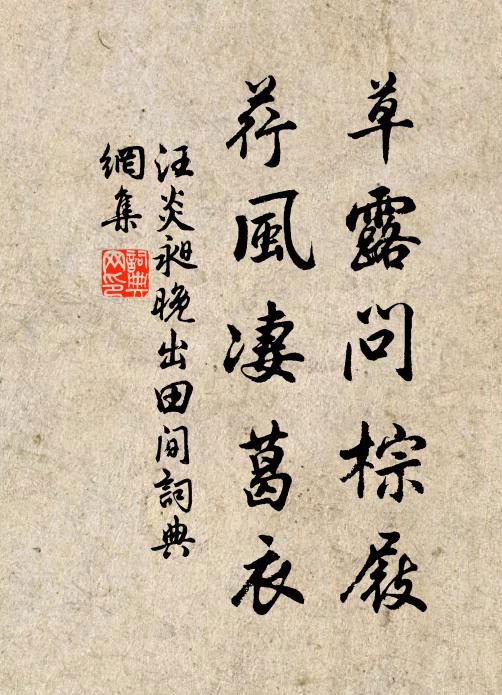 草露問棕屐
荇風淒葛衣
汪炎昶晚出田間詞典
網集
詞典網印